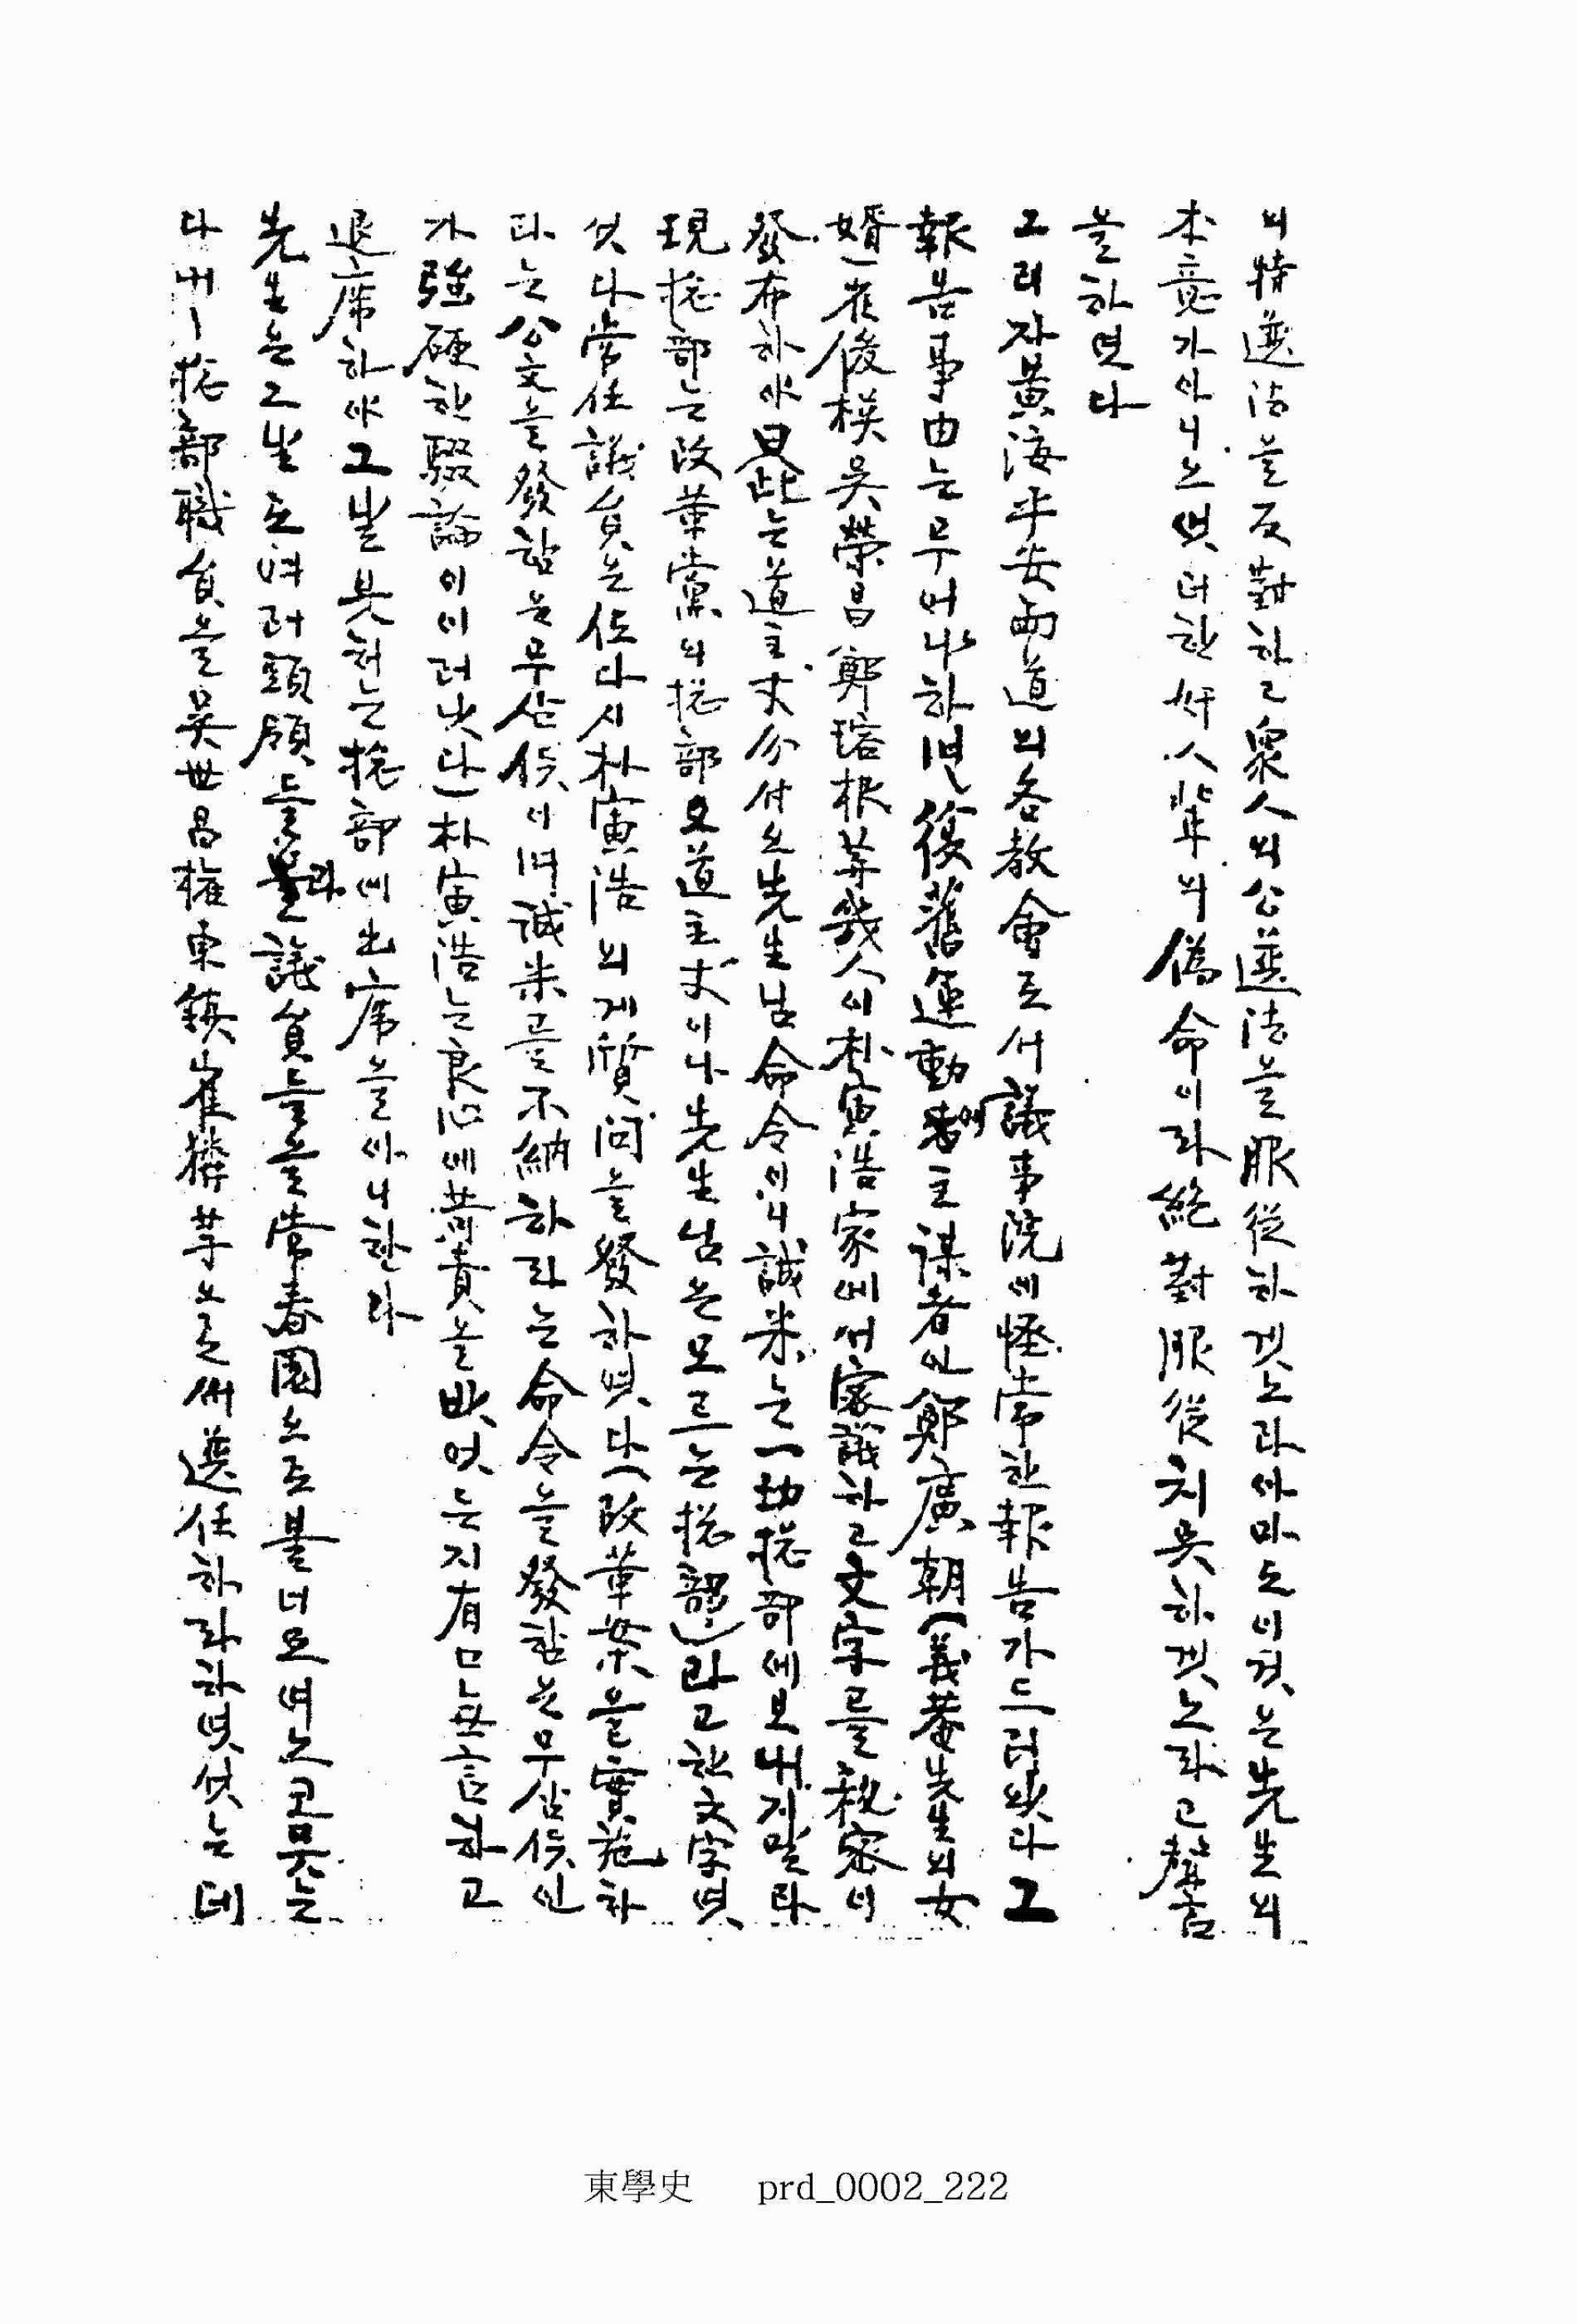 의 特選法을 反對하고 衆人의 公選法을 服從하겟노라 아마도 이것은 先生의
本意가 아니노엿더한 奸人輩의 偽命이라 絶對服從치못하겟노라고 聲言
을하엿다
그리자 黃海平安兩道의 各敎會로서 議事院에 怪常한 報告가 드러왓다 그
報告事由는 무어냐하면 復舊運動에 主謀者인 鄭廣朝(義菴先生의 女
婿) 崔俊模 吳榮昌 鄭瑢根 等 幾人이 朴寅浩家에서 密議하고 文字를 秘密이
發布하야 曰 此는 道主丈分付요 先生님命令이니 誠米는 一切 摠部에 보내지말라
現摠部는 改革黨의 摠部요 道主丈이나 先生님은 모르는 摠部)라고한 文字엿
섯다 常任議員은 또다시 朴寅浩의게 質問을 發하엿다 (改革案을 實施하
라는 公文을 發함은 무삼 뜻이며 誠米를 不納하라는 命令을 發함은 무삼 뜻인
가 強硬한 駁論이 이러낫다) 朴寅浩는 良心에 苛責을 밧엇는지 有口無言하고
退席하야 그 날붓처는 摠部에 出席을 아니한다
先生은 그 날로 여러 頭領들과 議員들을 常春園으로 불너 모여노코 뭇는
다 내ㅣ 摠部職員을 吳世昌 權東鎭 崔麟 等으로써 選任하라하엿섯는데